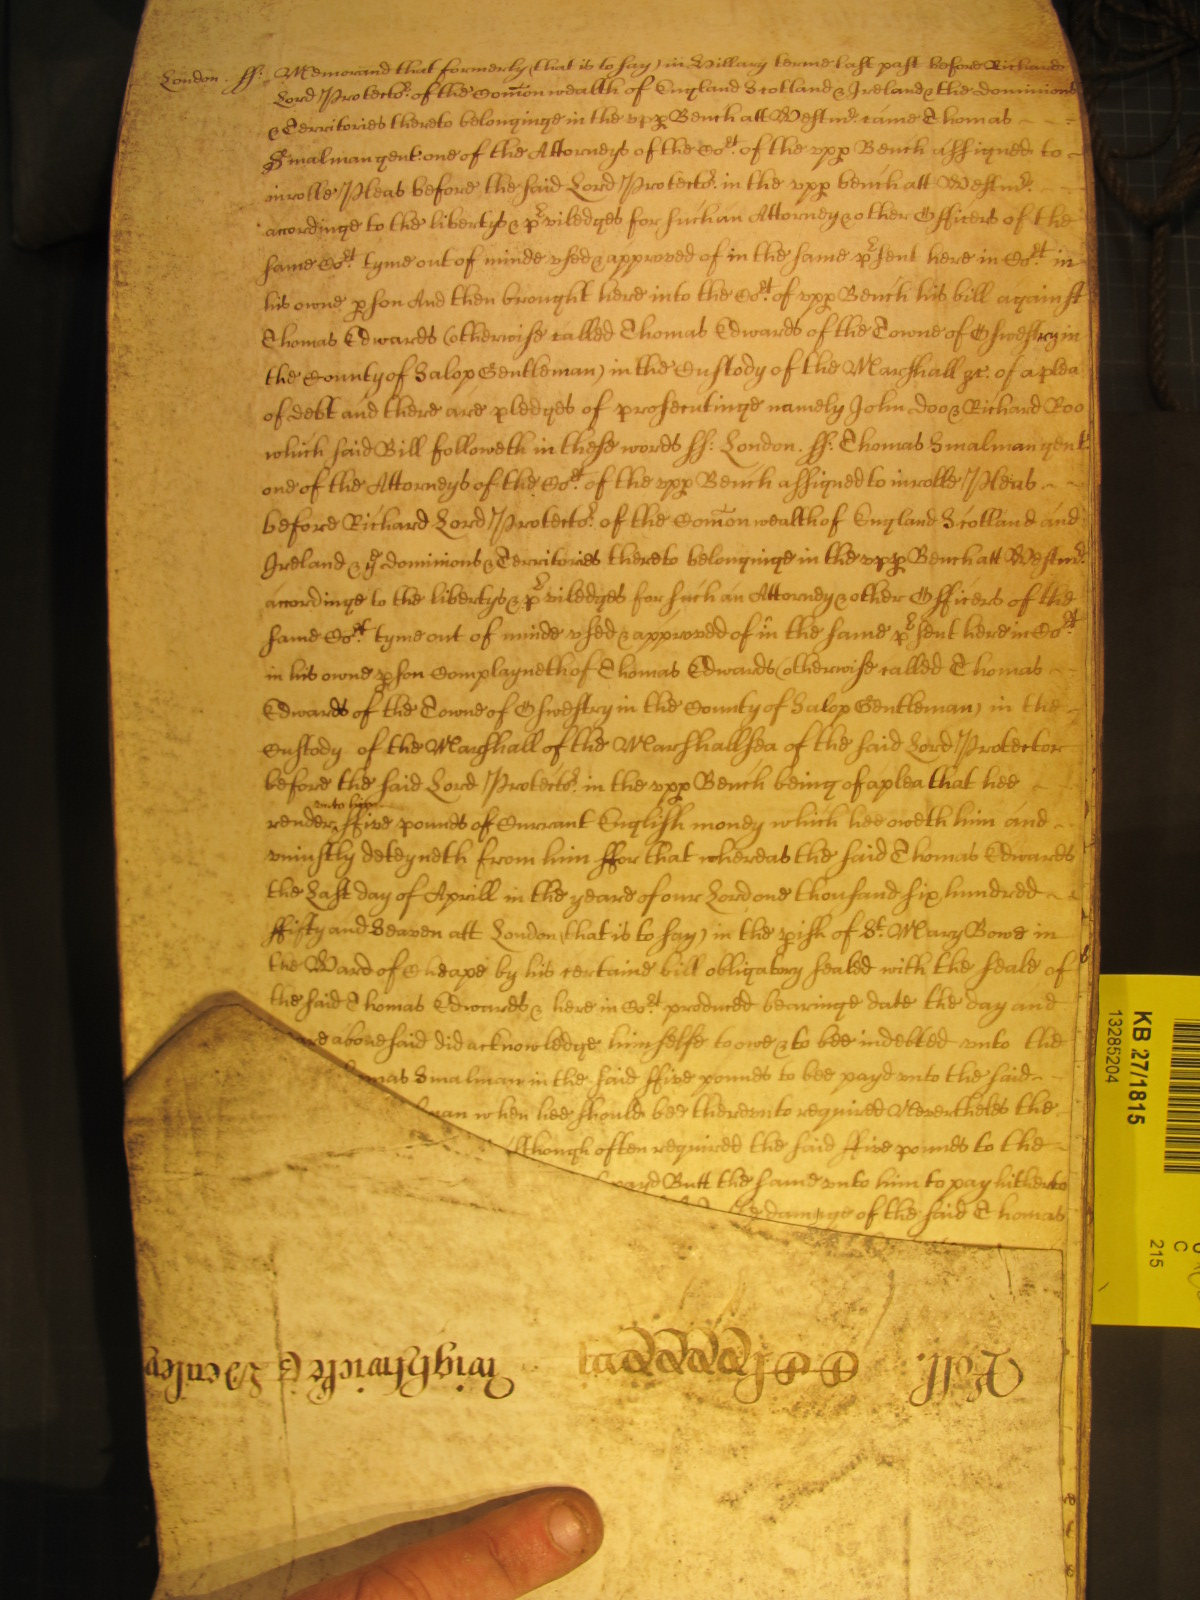 London. ss: Memorand that formerly (that is to say) in Hillary terme last past before Richard
Lord Protectoʳ. of the Com̃onwealth of England Scotland & Ireland & the dominions
& Territories thereto belonginge in the vpp Bench att Westmʳ. came Thomas - - -
Smalman gent one of the Attorneys of the Coʳᵗ. of the vpp Bench assigned to -
inrolle Pleas before the said Lord Protectoʳ. in the vpp bench att Westmʳ. -
accordinge to the libertys & pʳviledges for such an Attorney & other Officers of the
same Coʳᵗ. tyme out of minde vsed & approved of in the same pʳsent here in Coʳᵗ. in
his owne pson And then brought here into the Coʳᵗ. of vpp Bench his bill against
Thomas Edwards (otherwise called Thomas Edwards of the Towne of Oswestry in
the County of Salop Gentleman) in the Custody of the Marshall &c. of a plea
of debt and there are pledges of prosecutinge namely John Doo & Richard Roo
which said Bill followeth in these words ss: London. ss: Thomas Smalman gent
one of the Attorneys of the Coʳᵗ. of the vpp Bench assigned to inrolle Pleas. - -
before Richard Lord Protectoʳ. of the Com̃onwealth of England Scotland and
Ireland & yᵉ dominions & Territories thereto belonginge in the vpp Bench att Westmʳ.
accordinge to the libertys & pʳviledges for such an Attorney & other Officers of the
same Coʳᵗ. tyme out of minde vsed & approved of in the same pʳsent here in Coʳᵗ.
in his owne pson Complayneth of Thomas Edwards (otherwise called Thomas - -
Edwards of the Towne of Oswestry in the County of Salop Gentleman) in the -
Custody of the Marshall of the Marshallsea of the said Lord Protector
before the said Lord Protectoʳ. in the vpp Bench being of a plea that hee - -
vnto him
render ffive pounds of Currant English money which hee oweth him and -
vniustly deteyneth from him ffor that whereas the said Thomas Edwards
the Last day of Aprill in the yeare of our Lord one thousand six hundred - -
ffifty and Seaven att London (that is to say) in the pish of Sᵗ. Mary Bowe in
the Ward of Cheape by his certaine bill obligatory sealed with the seale of
the said Thomas Edwards & here in Coʳᵗ produced bearinge date the day and
abovesaid did acknowledge himselfe to owe & to bee indebted vnto the
omas Smalman in the said ffive pounds to bee payd vnto the said -
lman when hee should bee therevnto required Nevertheles the -
lthough often required the said ffive pounds to the -
payd Butt the same vnto him to pay hitherto
damage of the said Thomas
Roll:
wightwicke & Henley
KB 27/1815
13285204
C
215